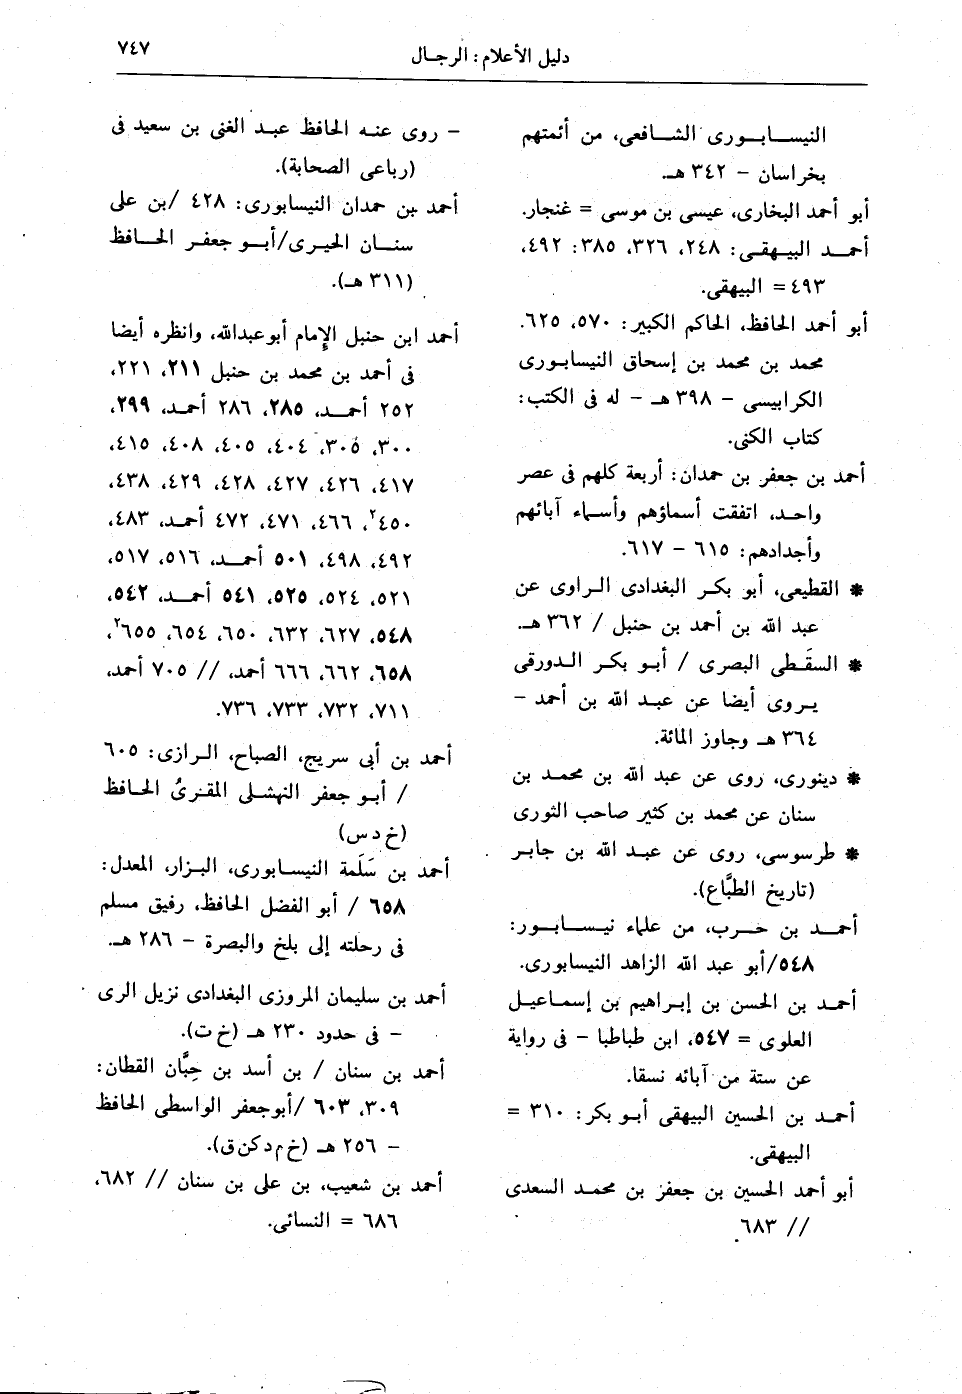 دليل الأعلام: الرجـال
٧٤٧
النيســـابـــورى الشـــافعى، من أئمتهم
بخراسان – ٣٤٢ هـ.
أبو أحمد البخارى، عيسى بن موسى = غنجار.
أحمـــد البيـهقـى: ٢٤٨، ٣٢٦، ٣٨٥: ٤٩٢،
٤٩٣ = البيهقى.
أبو أحمد الحافظ، الحاكم الكبير: ٥٧٠، ٦٢٥.
محمد بن محمد بن إسحاق النيسابورى
الكرابيسى – ٣٩٨ هـ – له فى الكتب:
كتاب الكنى.
أحمد بن جعفر بن حمدان: أربعة كلهم فى عصر
واحـد، اتفقت أسماؤهم وأسـماء آبائهم
وأجدادهم: ٦١٥ – ٦١٧.
* القطيعى، أبو بكـر البغدادى الـراوى عن
عبد الله بن أحمد بن حنبل / ٣٦٢ هـ.
* السقَـطى البصرى / أبـو بكـر الـدورقى
يـروى أيضا عن عبـد الله بن أحمد –
٣٦٤ هـ وجاوز المائة.
* دينورى، روى عن عبد الله بن محمـد بن
سنان عن محمد بن كثير صاحب الثورى
* طرسوسى، روى عن عبـد الله بن جابـر
(تاريخ الطبَّاع).
أحمـــد بن حـــرب، من علماء نيـســـابـــور:
٥٤٨/أبو عبد الله الزاهد النيسابورى.
أحمـد بن الحسن بن إبـراهيم بن إسمـاعيـل
العلوى = ٥٤٧، ابن طباطبا – فى رواية
عن ستة من آبائه نسقا.
أحمـد بن الحسين البيهقى أبـو بكر: ٣١٠ =
البيهقى.
أبو أحمد الحسين بن جعفر بن محمـد السعدى
// ٦٨٣.
– روى عنـه الحافظ عبـد الغنى بن سعيد فى
(رباعى الصحابة).
أحمد بن حمدان النيسابورى: ٤٢٨ /بن على
سنـان الحيرى/أبـو جعفـر الحـافظ
(٣١١ هـ).
أحمد ابن حنبل الإمام أبوعبدالله، وانظره أيضا
فى أحمد بن محمد بن حنبل ٢١١، ٢٢١،
٢٥٢ أحمـد، ٢٨٥، ٢٨٦ أحمـد، ٢٩٩،
٣٠٠، ٣٠٥، ٤٠٤، ٤٠٥، ٤٠٨، ٤١٥،
٤١٧، ٤٢٦، ٤٢٧، ٤٢٨، ٤٢٩، ٤٣٨،
٤٥٠٢، ٤٦٦، ٤٧١، ٤٧٢ أحمـد، ٤٨٣،
٤٩٢، ٤٩٨، ٥٠١ أحمـد، ٥١٦، ٥١٧،
٥٢١، ٥٢٤، ٥٢٥، ٥٤١ أحمـد، ٥٤٢،
٥٤٨، ٦٢٧، ٦٣٢، ٦٥٠، ٦٥٤، ٦٥٥٢،
٦٥٨، ٦٦٢، ٦٦٦ أحمد، // ٧٠٥ أحمد،
٧١١، ٧٣٢، ٧٣٣، ٧٣٦.
أحمد بن أبى سريج، الصباح، الـرازى: ٦٠٥
/ أبـو جعفر النهشلى المقـرئُ الحـافظ
(خ د س)
أحمد بن سَلَمة النيسـابورى، البـزار، المعدل:
٦٥٨ / أبو الفضل الحافظ، رفيق مسلم
فى رحلته إلى بلخ والبصرة – ٢٨٦ هـ.
أحمد بن سليمان المروزى البغدادى نزيل الرى
– فى حدود ٢٣٠ هـ (خ ت).
أحمد بن سنان / بن أسد بن حِبَّان القطان:
٣٠٩، ٦٠٣ /أبوجعفر الواسطى الحافظ
– ٢٥٦ هـ (خ م د كن ق).
أحمد بن شعيب، بن على بن سنان // ٦٨٢،
٦٨٦ = النسائى.